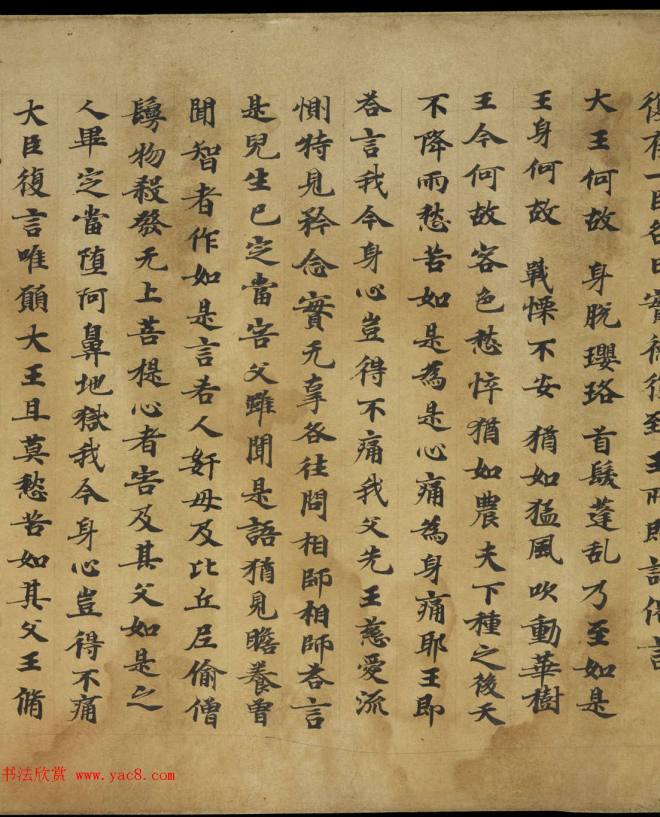 復有一臣名曰實德復至王所即說偈言
大王何故 身脫瓔珞 首髮蓬乱 乃至如是
王身何故 戰慄不安 猶如猛風 吹動華樹
王今何故容色愁悴猶如農夫下種之後天
不降雨愁苦如是為是心痛為身痛耶王即
荅言我今身心豈得不痛我父先王慈愛流
惻特見矜念實无辜咎往問相師相師荅言
是兒生已定當害父雖聞是語猶見瞻養曾
聞智者作如是言若人姧母及比丘尼偷僧
鬘物殺發无上菩提心者害及其父如是之
人畢定當堕阿鼻地獄我今身心豈得不痛
大臣復言唯願大王且莫愁苦如其父王脩
书法欣赏 www.yac8.com